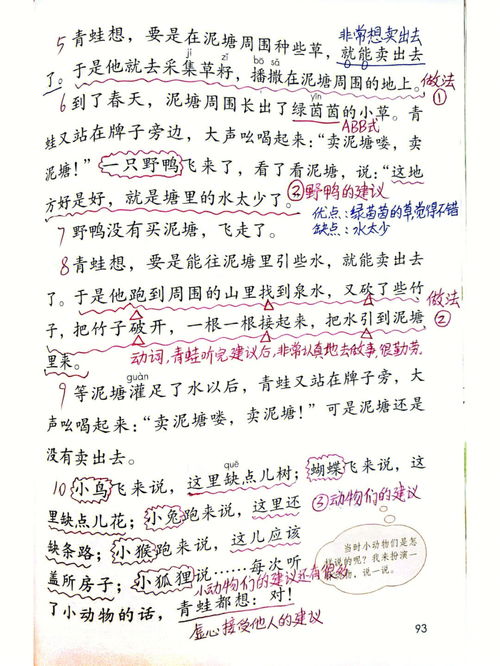 5 青蛙想，要是在泥塘周围种些草，就能卖出去
非常想卖出去
jí zǐ bō sǎ
了。于是他就去采集草籽，播撒在泥塘周围的地上。
做法①
yīn
6 到了春天，泥塘周围长出了绿茵茵的小草。青
ABB式
蛙又站在牌子旁边，大声吆喝起来：“卖泥塘喽，卖
泥塘！”一只野鸭飞来了，看了看泥塘，说：“这地
方好是好，就是塘里的水太少了。”
②野鸭的建议
优点：绿茵茵的草觉得不错
缺点：水太少
7 野鸭没有买泥塘，飞走了。
8 青蛙想，要是能往泥塘里引些水，就能卖出去
了。于是他跑到周围的山里找到泉水，又砍了些竹
子，把竹子破开，一根一根接起来，把水引到泥塘
做法②
里来。
动词，青蛙听完建议后，非常认真地去做事，很勤劳。
guàn
9 等泥塘灌足了水以后，青蛙又站在牌子旁，大
声吆喝起来：“卖泥塘喽，卖泥塘！”可是泥塘还是
没有卖出去。
quē
10 小鸟飞来说，这里缺点儿树；蝴蝶飞来说，这
里缺点儿花；小兔跑来说，这里还
③动物们的建议
缺条路；小猴跑来说，这儿应该
盖所房子；小狐狸说……每次听
小动物们的建议还有很多
了小动物的话，青蛙都想：对！
虚心接受他人的建议
当时小动物们是怎
样说的呢？我来扮演一
说一说。
93